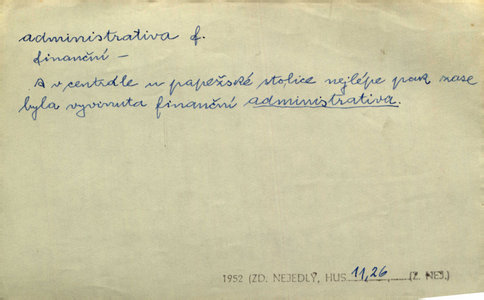 administrativa f.
finanční –
A v centrále u papežské stolice nejlépe pak zase
byla vyvinuta finanční administrativa.
1952 (ZD. NEJEDLÝ, HUS 11,26 (Z. NEJ.)